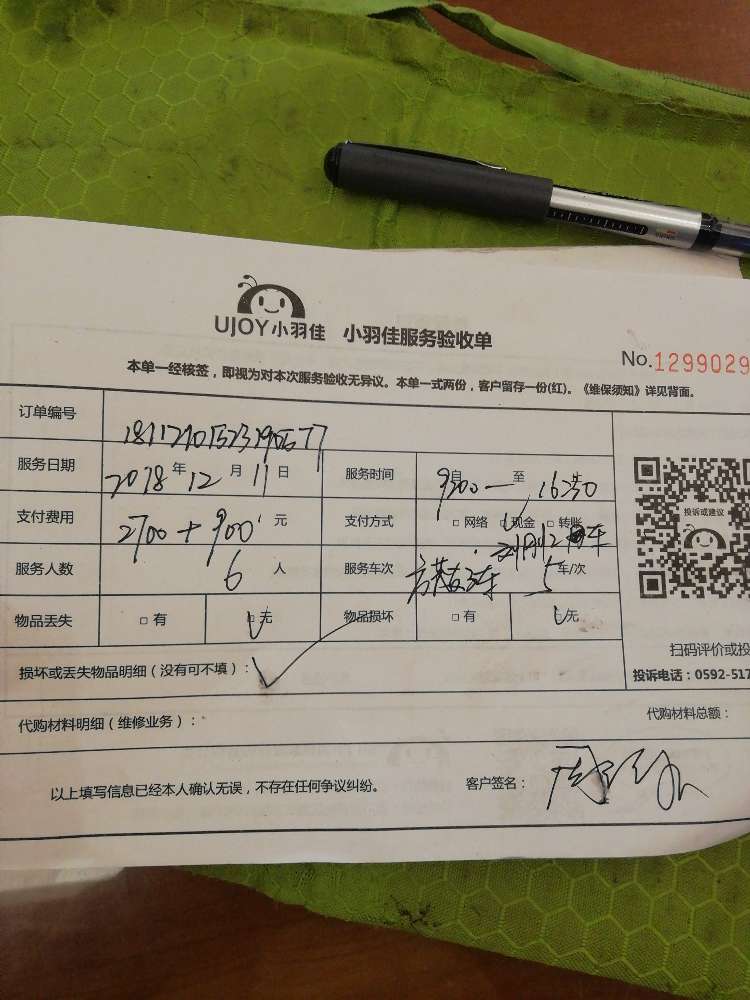 UJOY小羽佳 小羽佳服务验收单
No.1299029
本单一经核签，即视为对本次服务验收无异议。本单一式两份，客户留存一份(红)。《维保须知》详见背面。
订单编号
服务日期 2018年12月11日 服务时间 9:00自—至16:30
支付费用 2700+900元 支付方式 □网络 □现金 □转账
服务人数 6人 服务车次 5车/次
物品丢失 □有 □无 物品损坏 □有 □无
投诉或建议
扫码评价或投
损坏或丢失物品明细（没有可不填）：
投诉电话：0592-517
代购材料明细（维修业务）： 代购材料总额：
以上填写信息已经本人确认无误，不存在任何争议纠纷。 客户签名：